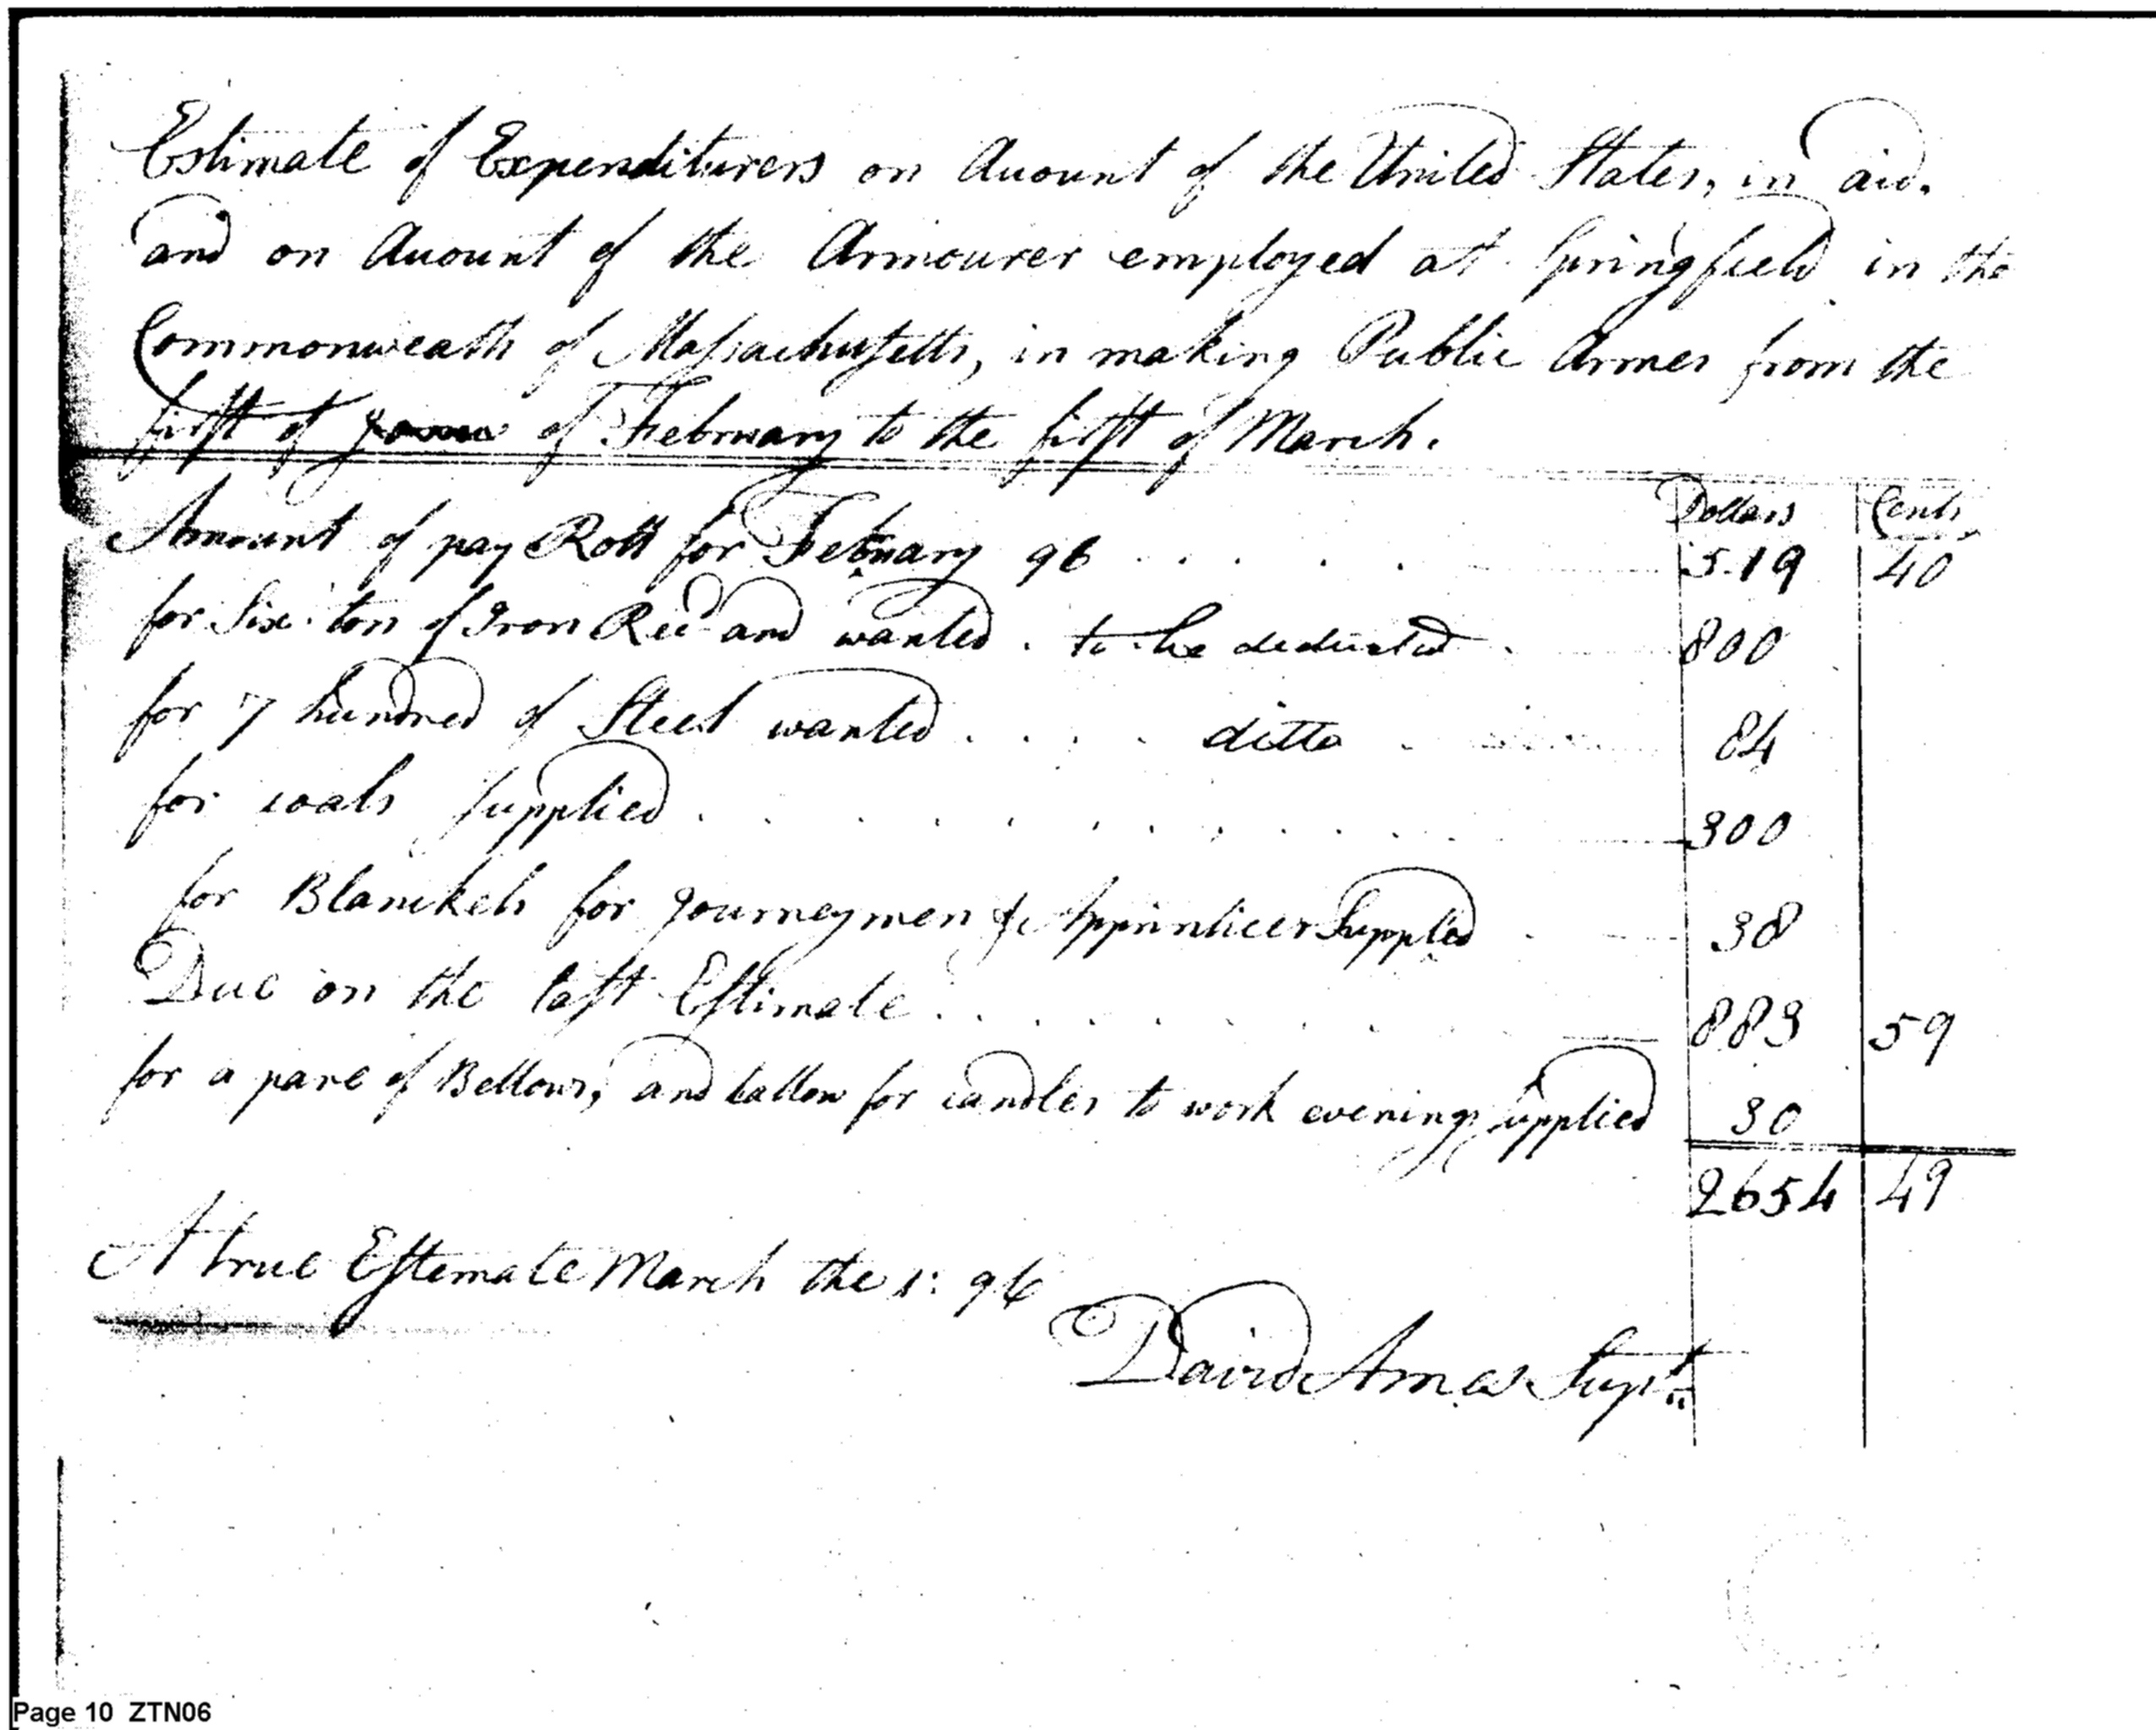 Estimate of Expenditurers on Account of the United States, in aid,
and on Account of the Armourer employed at Springfield in the
Commonweath of Massachusetts, in making Public Armes from the
first of of February to the first of March.
Dollars Cents
Amount of pay Roll for February 96 . . . . . 519 40
for Six ton of Iron Recd and wanted . to be deducted . 800
for 7 hundred of Steel wanted . . . . ditto . 84
for coals supplied . . . . . . . . . . . 300
for Blanckets for Journeymen & Apprinticer Supplied . 38
Due on the last Estimate . . . . . . . . . 883 59
for a pare of Bellows, and tallow for candles to work evenings supplied 30
2654 49
A true Estemate March the 1: 96
David Ames Supt
Page 10 ZTN06